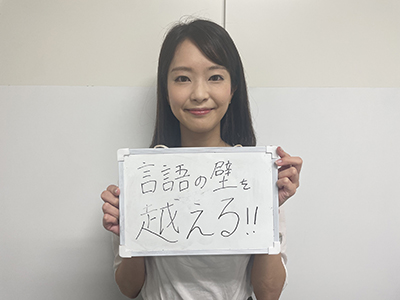 言語の壁を
越える!!